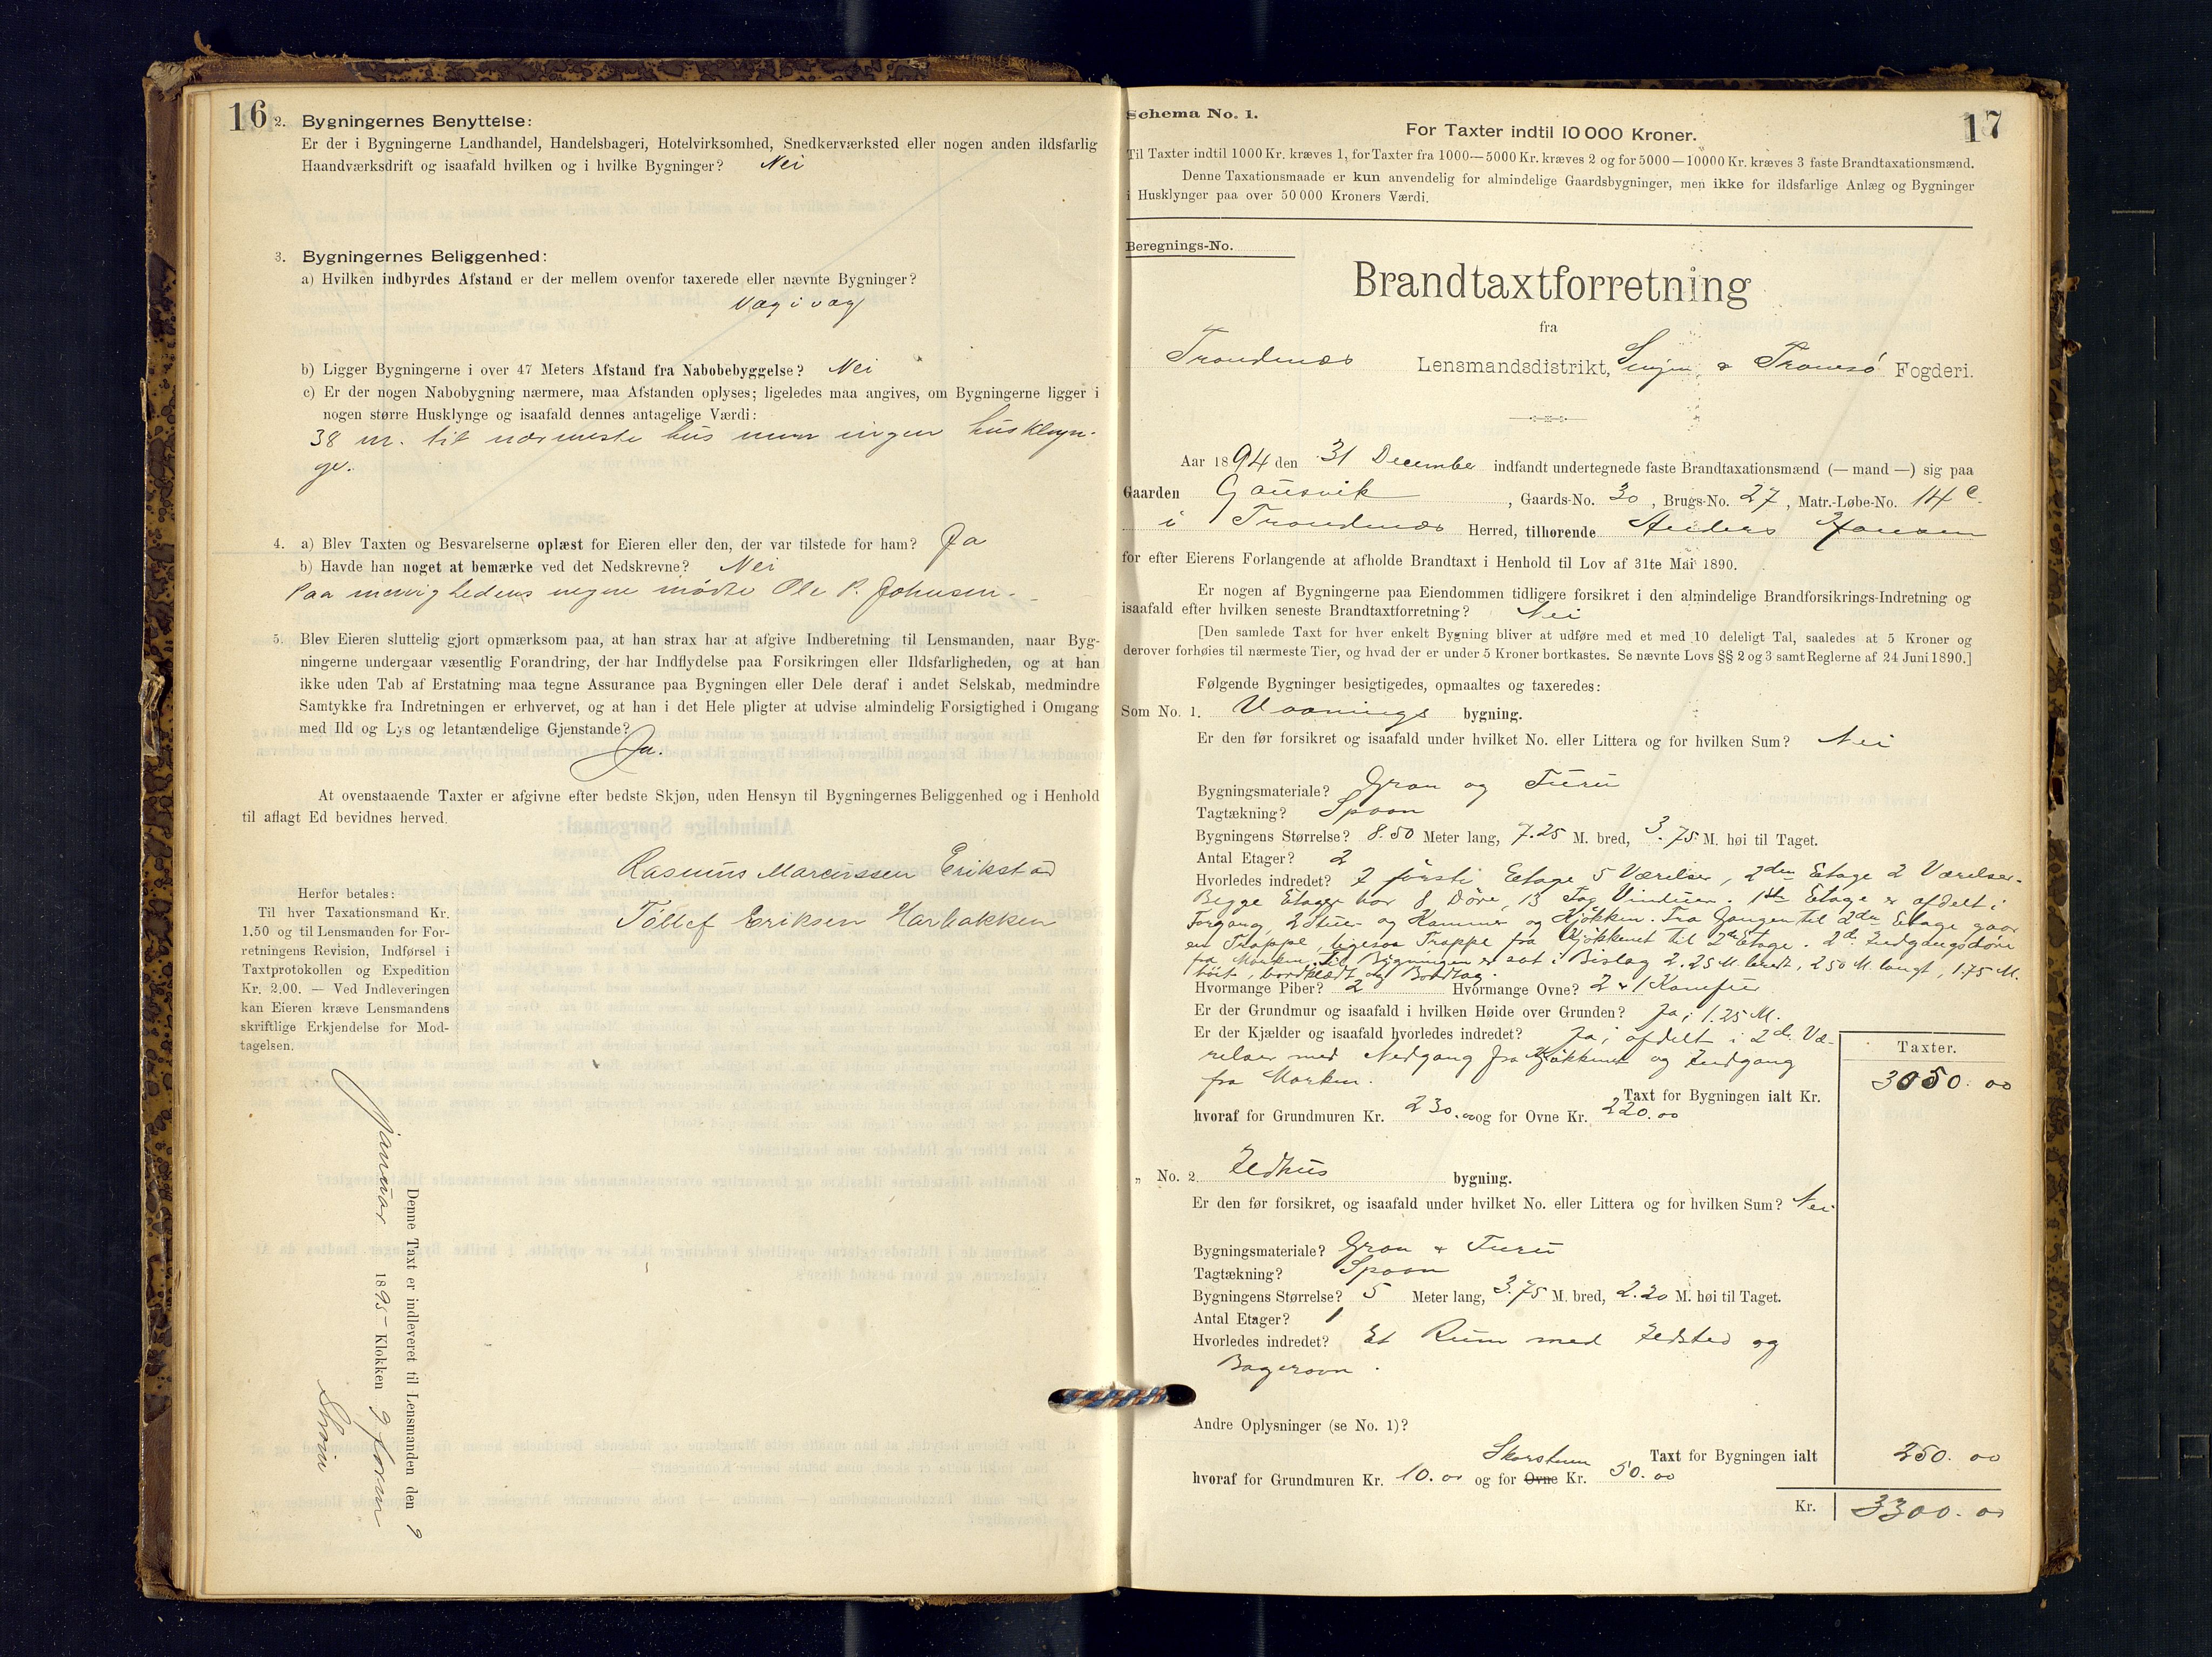 16
2. Bygningernes Benyttelse:
Er der i Bygningerne Landhandel, Handelsbageri, Hotelvirksomhed, Snedkerværksted eller nogen anden ildsfarlig
Haandværksdrift og isaafald hvilken og i hvilke Bygninger? Nei
3. Bygningernes Beliggenhed:
a) Hvilken indbyrdes Afstand er der mellem ovenfor taxerede eller nævnte Bygninger?
Væg i væg
b) Ligger Bygningerne i over 47 Meters Afstand fra Nabobebyggelse? Nei
c) Er der nogen Nabobygning nærmere, maa Afstanden oplyses; ligeledes maa angives, om Bygningerne ligger i
nogen større Husklynge og isaafald dennes antagelige Værdi:
38 m. til nærmeste hus men ingen husklyn-
ge.
4. a) Blev Taxten og Besvarelserne oplæst for Eieren eller den, der var tilstede for ham? Ja
b) Havde han noget at bemærke ved det Nedskrevne? Nei
Paa menighedens vegne mødte Ole P. Johnsen.
5. Blev Eieren sluttelig gjort opmærksom paa, at han strax har at afgive Indberetning til Lensmanden, naar Byg-
ningerne undergaar væsentlig Forandring, der har Indflydelse paa Forsikringen eller Ildsfarligheden, og at han
ikke uden Tab af Erstatning maa tegne Assurance paa Bygningen eller Dele deraf i andet Selskab, medmindre
Samtykke fra Indretningen er erhvervet, og at han i det Hele pligter at udvise almindelig Forsigtighed i Omgang
med Ild og Lys og letantændelige Gjenstande?
Ja.
At ovenstaaende Taxter er afgivne efter bedste Skjøn, uden Hensyn til Bygningernes Beliggenhed og i Henhold
til aflagt Ed bevidnes herved.
Rasmus Marcussen Erikstad
Tollef Eriksen Harbakken
Herfor betales:
Til hver Taxationsmand Kr.
1.50 og til Lensmanden for For-
retningens Revision, Indførsel i
Taxtprotokollen og Expedition
Kr. 2,00. — Ved Indleveringen
kan Eieren kræve Lensmandens
skriftlige Erkjendelse for Mod-
tagelsen.
Denne Taxt er indleveret til Lensmanden den 9
Januar 1895 Klokken 9 form
17
Schema No. 1.
For Taxter indtil 10 000 Kroner.
Til Taxter indtil 1000 Kr. kræves 1, for Taxter fra 1000—5000 Kr. kræves 2 og for 5000—10000 Kr. kræves 3 faste Brandtaxationsmænd.
Denne Taxationsmaade er kun anvendelig for almindelige Gaardsbygninger, men ikke for ildsfarlige Anlæg og Bygninger
i Husklynger paa over 50 000 Kroners Værdi.
Beregnings-No.
Brandtaxtforretning
fra
Trondenæs Lensmandsdistrikt, Senjen & Tromsø Fogderi.
Aar 1894 den 31 December indfandt undertegnede faste Brandtaxationsmænd (— mand —) sig paa
Gaarden Gausvik, Gaards-No. 30, Brugs-No. 27, Matr.-Løbe-No. 14 c.
i Trondenæs Herred, tilhørende Anders Jansen
for efter Eierens Forlangende at afholde Brandtaxt i Henhold til Lov af 31te Mai 1890.
Er nogen af Bygningerne paa Eiendommen tidligere forsikret i den almindelige Brandforsikrings-Indretning og
isaafald efter hvilken seneste Brandtaxtforretning? Nei
[Den samlede Taxt for hver enkelt Bygning bliver at udføre med et med 10 deleligt Tal, saaledes at 5 Kroner og
derover forhøies til nærmeste Tier, og hvad der er under 5 Kroner bortkastes. Se nævnte Lovs §§ 2 og 3 samt Reglerne af 24 Juni 1890.]
Følgende Bygninger besigtigedes, opmaaltes og taxeredes:
Som No. 1. Vaanings bygning.
Er den før forsikret og isaafald under hvilket No. eller Littera og for hvilken Sum? Nei
Bygningsmateriale? Gran og Furu
Tagtækning? Spaan
Bygningens Størrelse? 8.50 Meter lang, 7.25 M. bred, 3.75 M. høi til Taget.
Antal Etager? 2
Hvorledes indredet? I første Etage 5 Værelser, 2den Etage 2 Værelser.
Begge Etager har 8 Døre, 13 Fag Vinduer. 1ste Etage er afdelt i
Forgang, 2 Stuer og Kammer og Kjøkken. Fra Gangen til 2den Etage gaar
en Trappe, ligesaa Trappe fra Kjøkkenet til 2den Etage. 2de Indgangsdøre
fra Marken. Til Bygningen er sat i Bislag 2.25 M. bredt, 2.50 M. langt, 1.75 M.
høit, bordklædt og Bordtag.
Hvormange Piber? 2 Hvormange Ovne? 2 & 1 Komfur
Er der Grundmur og isaafald i hvilken Høide over Grunden? Ja, i 1.25 M.
Er der Kjælder og isaafald hvorledes indredet? Ja, afdelt i 2de Væ-
relser med Nedgang fra Kjøkkenet og Indgang
fra Marken.
Taxter.
Taxt for Bygningen ialt Kr. 3050.00
hvoraf for Grundmuren Kr. 230.00 og for Ovne Kr. 220.00
„ No. 2. Ildhus bygning.
Er den før forsikret, og isaafald under hvilket No. eller Littera og for hvilken Sum? Nei
Bygningsmateriale? Gran & Furu
Tagtækning? Spaan
Bygningens Størrelse? 5 Meter lang, 3.75 M. bred, 2.20 M. høi til Taget.
Antal Etager? 1
Hvorledes indredet? Et Rum med Ildsted og
Bagerovn.
Andre Oplysninger (se No. 1)?
Skorsten Taxt for Bygningen ialt 250.00
hvoraf for Grundmuren Kr. 10.00 og for Ovne Kr. 50.00
Kr. 3300.00